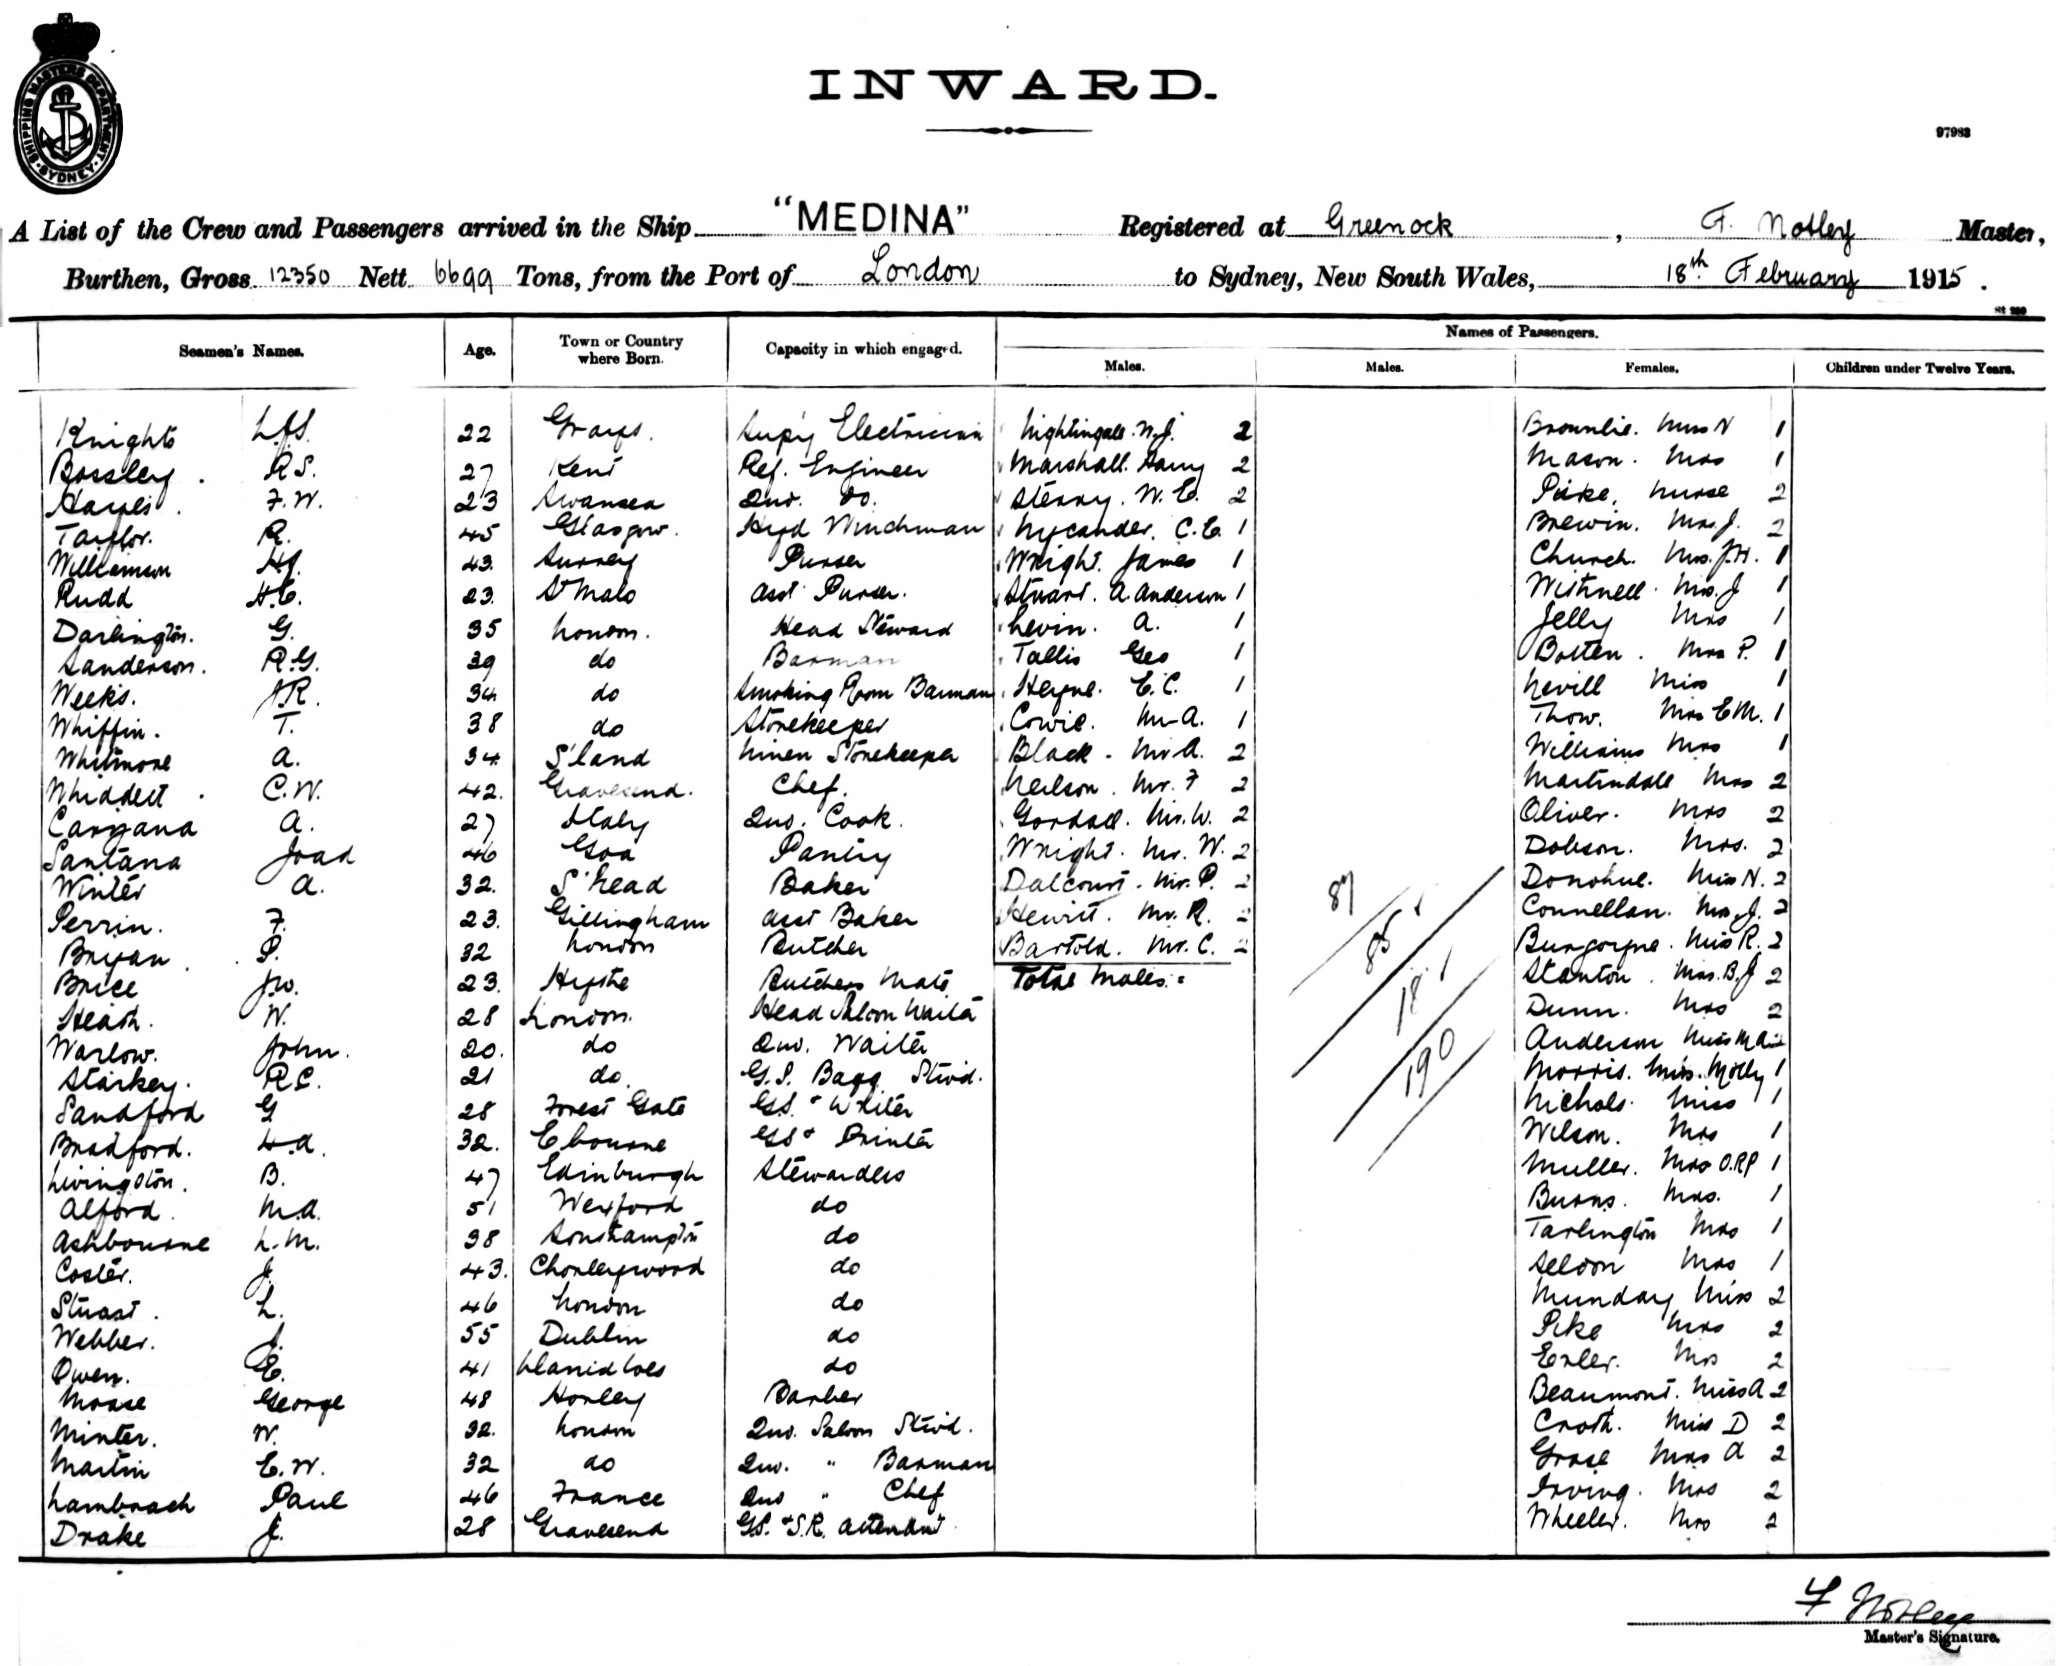 INWARD.
SHIPPING MASTERS DEPARTMENT. SYDNEY
97983
A List of the Crew and Passengers arrived in the Ship "MEDINA" Registered at Greenock, F. Notley Master,
Burthen, Gross 12350 Nett 6699 Tons, from the Port of London to Sydney, New South Wales, 18th February 1915.
Names of Passengers.
Seamen's Names. Age. Town or Country where Born. Capacity in which engaged. Males. Males. Females. Children under Twelve Years.
Knights 22 Grays. Supy Electrician Nightingale. N.J. 2 Brownlie. Miss N 1
Bossley. R S. 27 Kent Ref. Engineer Marshall. Harry 2 Mason. Mrs 1
Hayes. F. W. 23 Swansea 2nd. do. Sterry. W. E. 2 Pike. Nurse 2
Taylor. R. 45 Glasgow. Hyd Winchman Nycander. C. E. 1 Brewin. Mrs. J. 2
Williamson HJ. 43. Surrey Purser Wright. James 1 Church. Mrs. J.H. 1
Rudd H.C. 23. St Malo Asst Purser. Stuart. A. Anderson 1 Withnell. Mrs. J 1
Darlington. G. 35 London. Head Steward Levin. A. 1 Jelly Mrs 1
Sanderson. R.G. 39 do Barman Tallis Geo 1 Botten. Mrs P. 1
Weeks. J.R. 34 do Smoking Room Barman Heyne. E. C. 1 Nevill Miss 1
Whiffin. T. 38 do Storekeeper Cowie. Mr A. 1 Thow. Mrs E M. 1
Whitmore A. 34 S'land Linen Storekeeper Black. Mr A. 2 Williams Mrs 1
Whiddett. C. W. 42. Gravesend. Chef. Neilson. Mr. F 2 Martindale Mrs 2
Caryana A. 27 Italy 2nd. Cook. Mr. W. 2 Oliver. Mrs 2
Santana Joao 46 Goa Pantry Wright. Mr. W. 2 Dobson. Mrs. 2
Winter A. 32. S'head Baker Dalcourt. Mr. P. 2 Donohue. Miss N. 2
Perrin. F. 23. Gillingham Asst Baker Hewitt. Mr. R. 2 Connellan. Mrs. J. 2
Bryan. P. 32 London Butcher Bartold. Mr. C. 2 Burgoyne. Miss R. 2
Brice J.W. 23. Hythe Butchers Mate Total Males = Stanton. Mrs. B.J 2
Heath. W. 28 London. Head Saloon Waiter Dunn. Mrs 2
Warlow. John. 20. do 2nd. Waiter Anderson Miss
Starkey. R C. 21 do. G.S. Bagg Stwd. Morris. Miss. Molly 1
Sandford G 28 Forest Gate G.S. & Writer Nichols. Miss 1
Bradford. H.A. 32. E'bourne GS & Printer Wilson. Mrs 1
Livingston. B. 47 Edinburgh Stewardess Muller. Mrs O.R.P 1
Alford. M.A. 51 Wexford do Burns. Mrs. 1
Ashbourne L. M. 38 Southampton do Tarlington Mrs 1
Coster. J. 43. Chorleywood do Seldon Mrs 1
Stuart. L. 46 London do Munday Miss 2
Webber. J. 55 Dublin do Pike Mrs 2
Owen. E. 41 Llanidloes do Exler. Mrs 2
Moase George 48 Horley Barber Beaumont. Miss A 2
Minter. W. 32. London 2nd. Saloon Stwd. Croth. Miss D 2
Martin E. W. 32 do 2nd. " Barman Grose Mrs A 2
Lambrach Paul 46 France 2nd " Chef Irving. Mrs 2
Drake J. 28 Gravesend GS. & S.R. Attendant. Wheeler. Mrs 2
87
85
18
190
F Notley
Master's Signature.